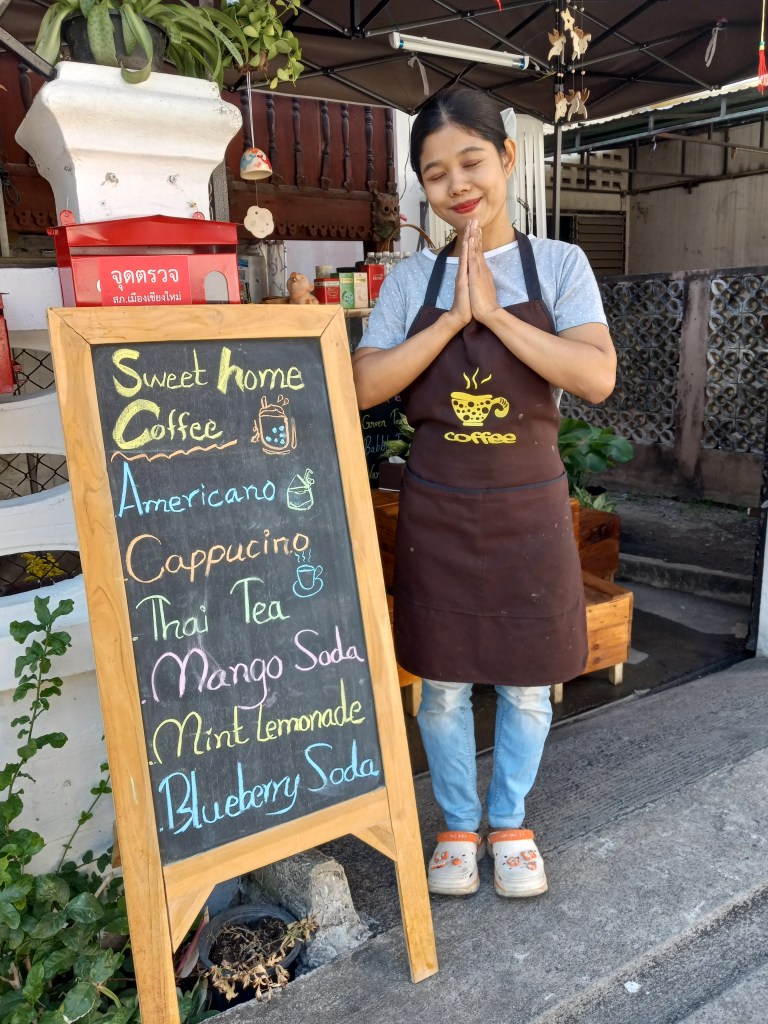 จุดตรวจ
สภ.เมืองเชียงใหม่
Sweet home
Coffee
Americano
Cappucino
Thai Tea
Mango Soda
Mint lemonade
Blueberry Soda
coffee
Green Tea